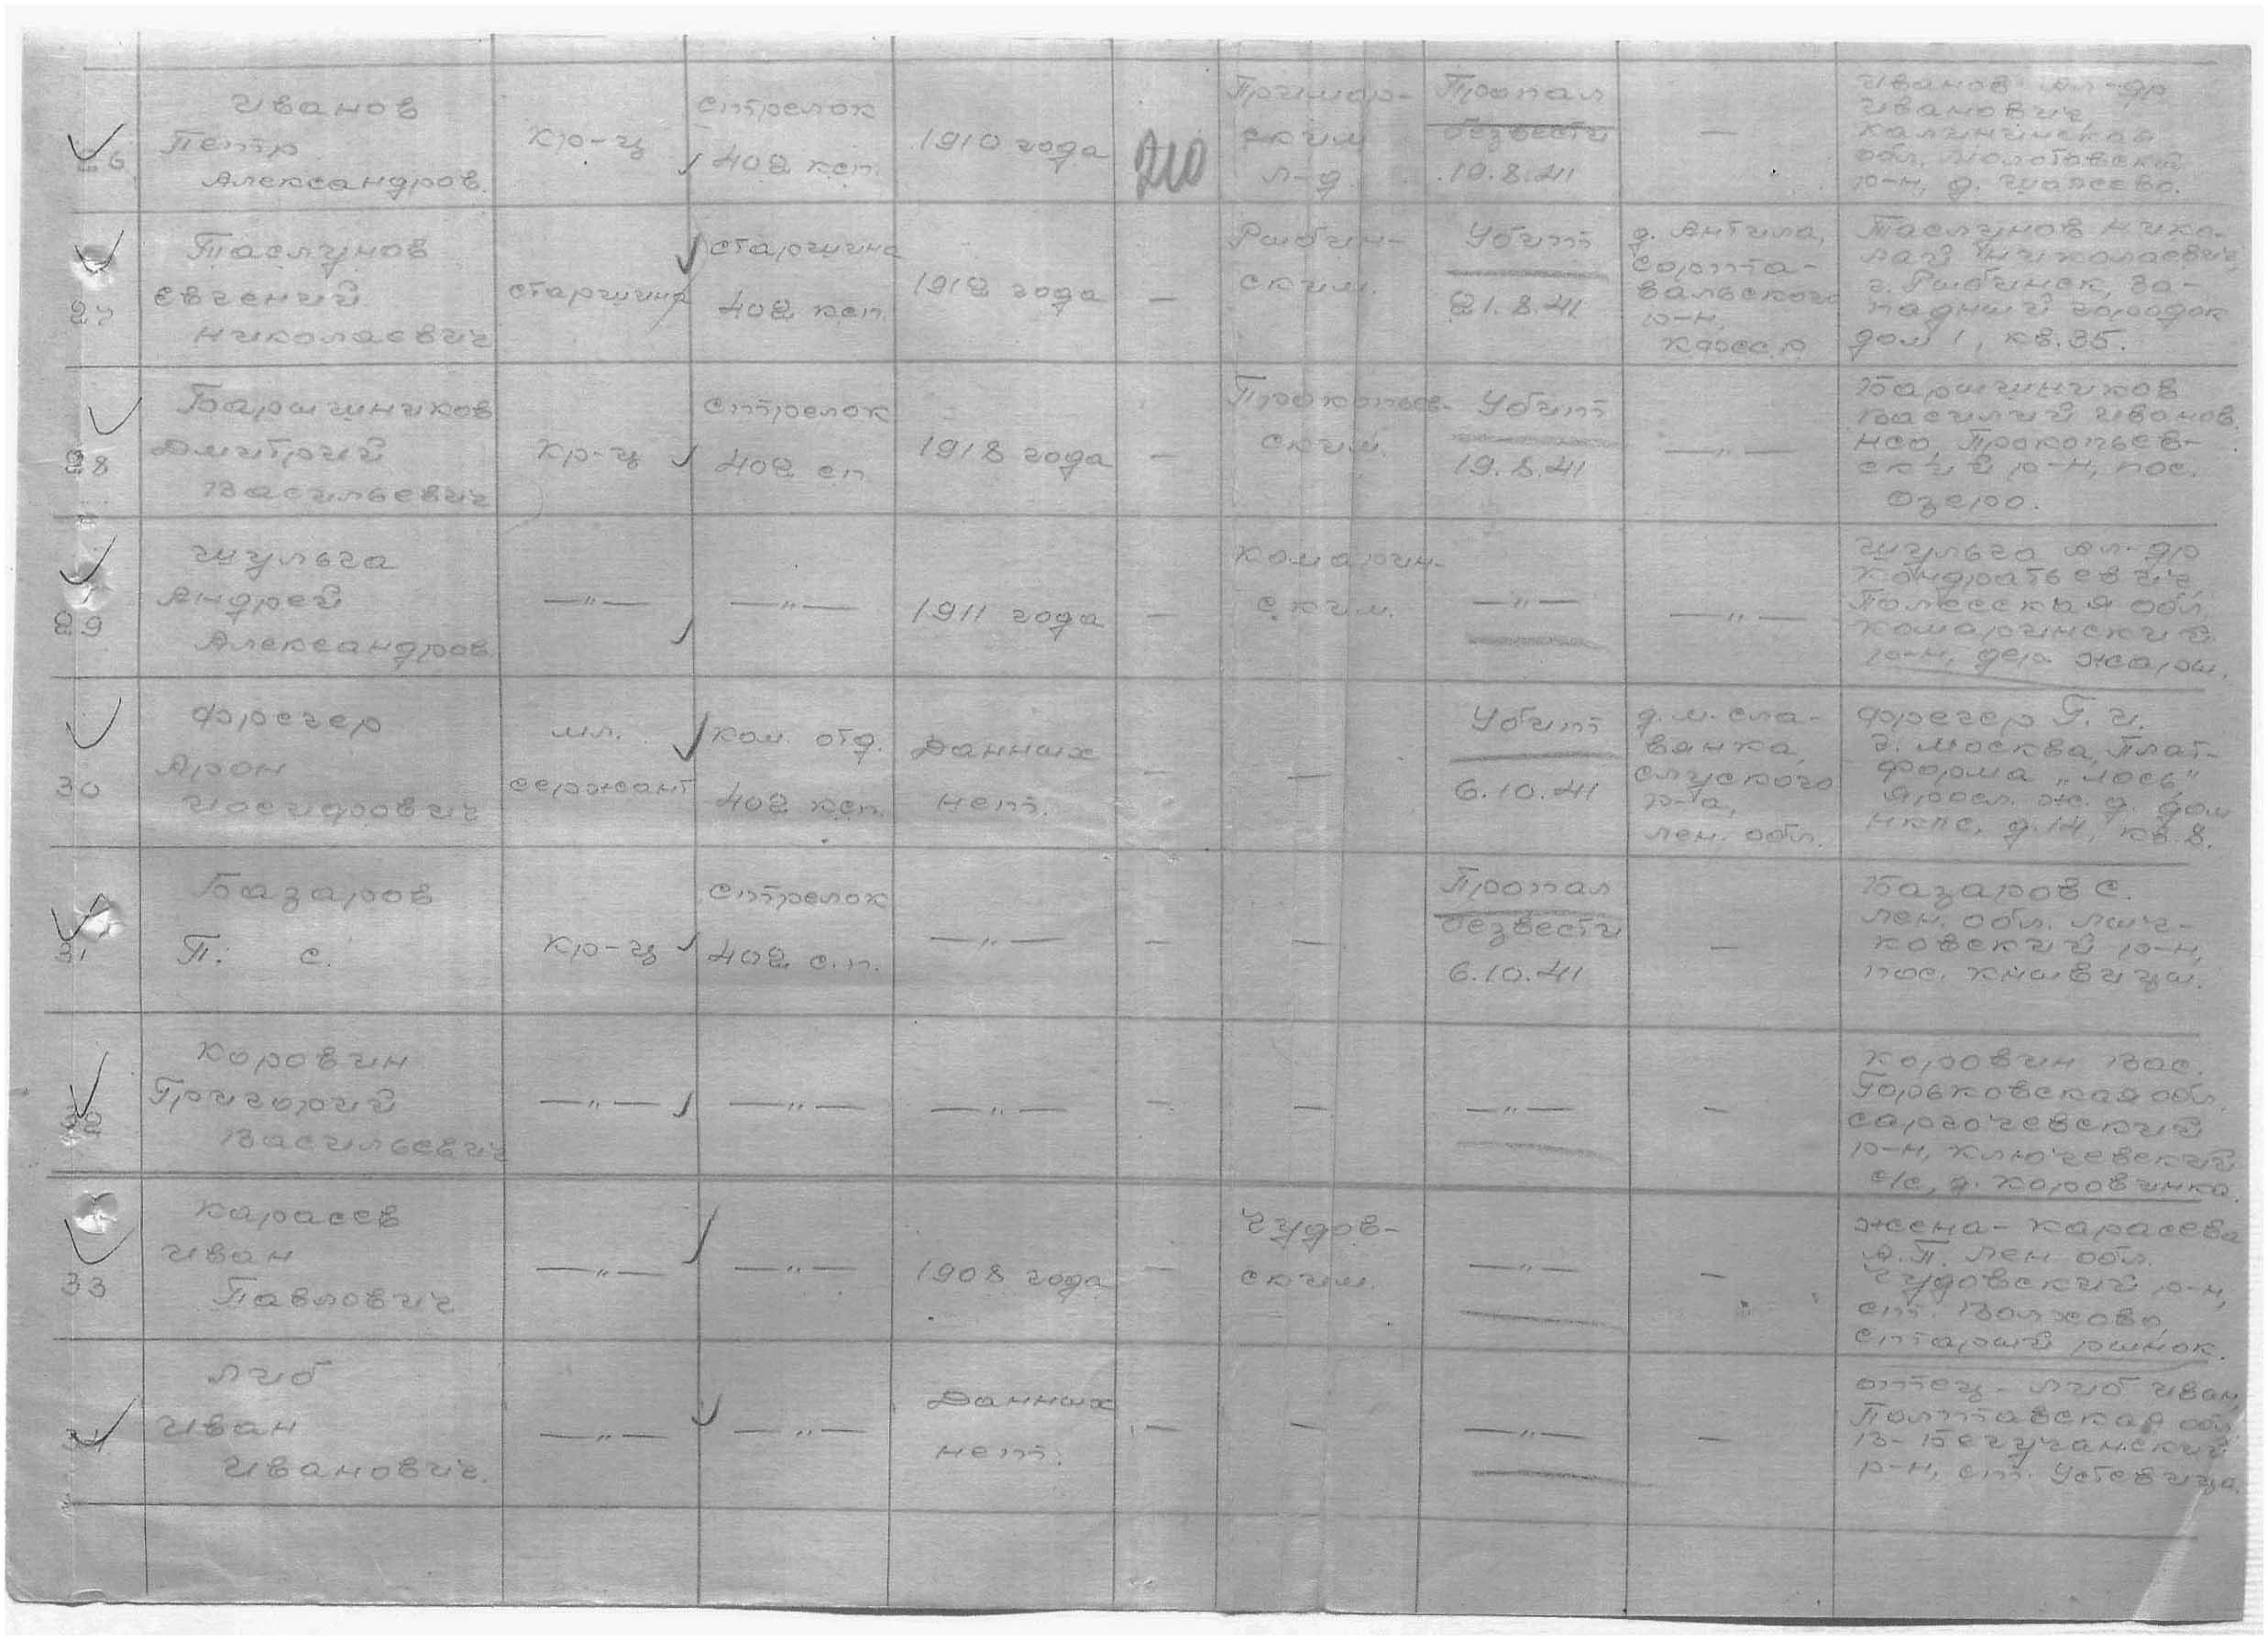 26
Иванов
Петр
Александров.
Кр-ц
Стрелок
402 ксп.
1910 года
210
Примор-
ским
л-д
Пропал
безвести
19.8.41
—
Иванов Ал-др
Иванович
Калининская
обл. Молотовский
р-н, д.
27
Таслунов
Евгений
Николаевич
старшина
старшина
402 ксп.
1912 года
—
Рыбин-
ским.
Убит
21.8.41
д. Антила,
Сорта-
вальского
р-н,
КФССР
Таслунов Нико-
лай Николаевич,
г. Рыбинск, За-
падный городок
дом 1, кв. 35.
28
Барышников
Дмитрий
Васильевич
Кр-ц
Стрелок
402 сп
1918 года
—
Прокопьев-
ским.
Убит
19.8.41
— " —
Барышников
Василий Иванов.
НСО, Прокопьев-
ский р-н, пос.
Озеро.
29
Шульга
Андрей
Александров
— " —
— " —
1911 года
—
Комарин-
ским.
— " —
— " —
Шульга Ал-др
Кондратьевич,
Полесская обл.
Комаринский
р-н, дер. Жары.
30
Фрегер
Арон
Иосифович
мл.
сержант
Ком. отд.
402 ксп.
Данных
нет.
—
—
Убит
6.10.41
д. м. Сла-
вянка,
Слуского
р-а,
Лен. обл.
Фрегер Г. И.
г. Москва, Плат-
форма „Лось"
Яросл. ж. д. дом
НКПС, д. 14, кв. 8.
31
Базаров
П. С.
Кр-ц
Стрелок
402 с.п.
— " —
—
—
Пропал
безвести
6.10.41
—
Базаров С.
Лен. обл. Лыч-
ковский р-н,
пос. Кневицы.
32
Коровин
Григорий
Васильевич
— " —
— " —
— " —
—
—
— " —
—
Коровин Вас.
Горьковская обл.
Сергачевский
р-н, Ключевский
с/с, д. Коровинка.
33
Карасев
Иван
Павлович
— " —
— " —
1908 года
—
Чудов-
ским.
— " —
—
Жена - Карасева
А. П. Лен обл.
Чудовский р-н,
ст. Волхово,
Старый рынок.
34
Либ
Иван
Иванович.
— " —
— " —
Данных
нет.
—
—
— " —
—
Отец - Либ Иван,
Полтавская обл
р-н, ст. Устевица.